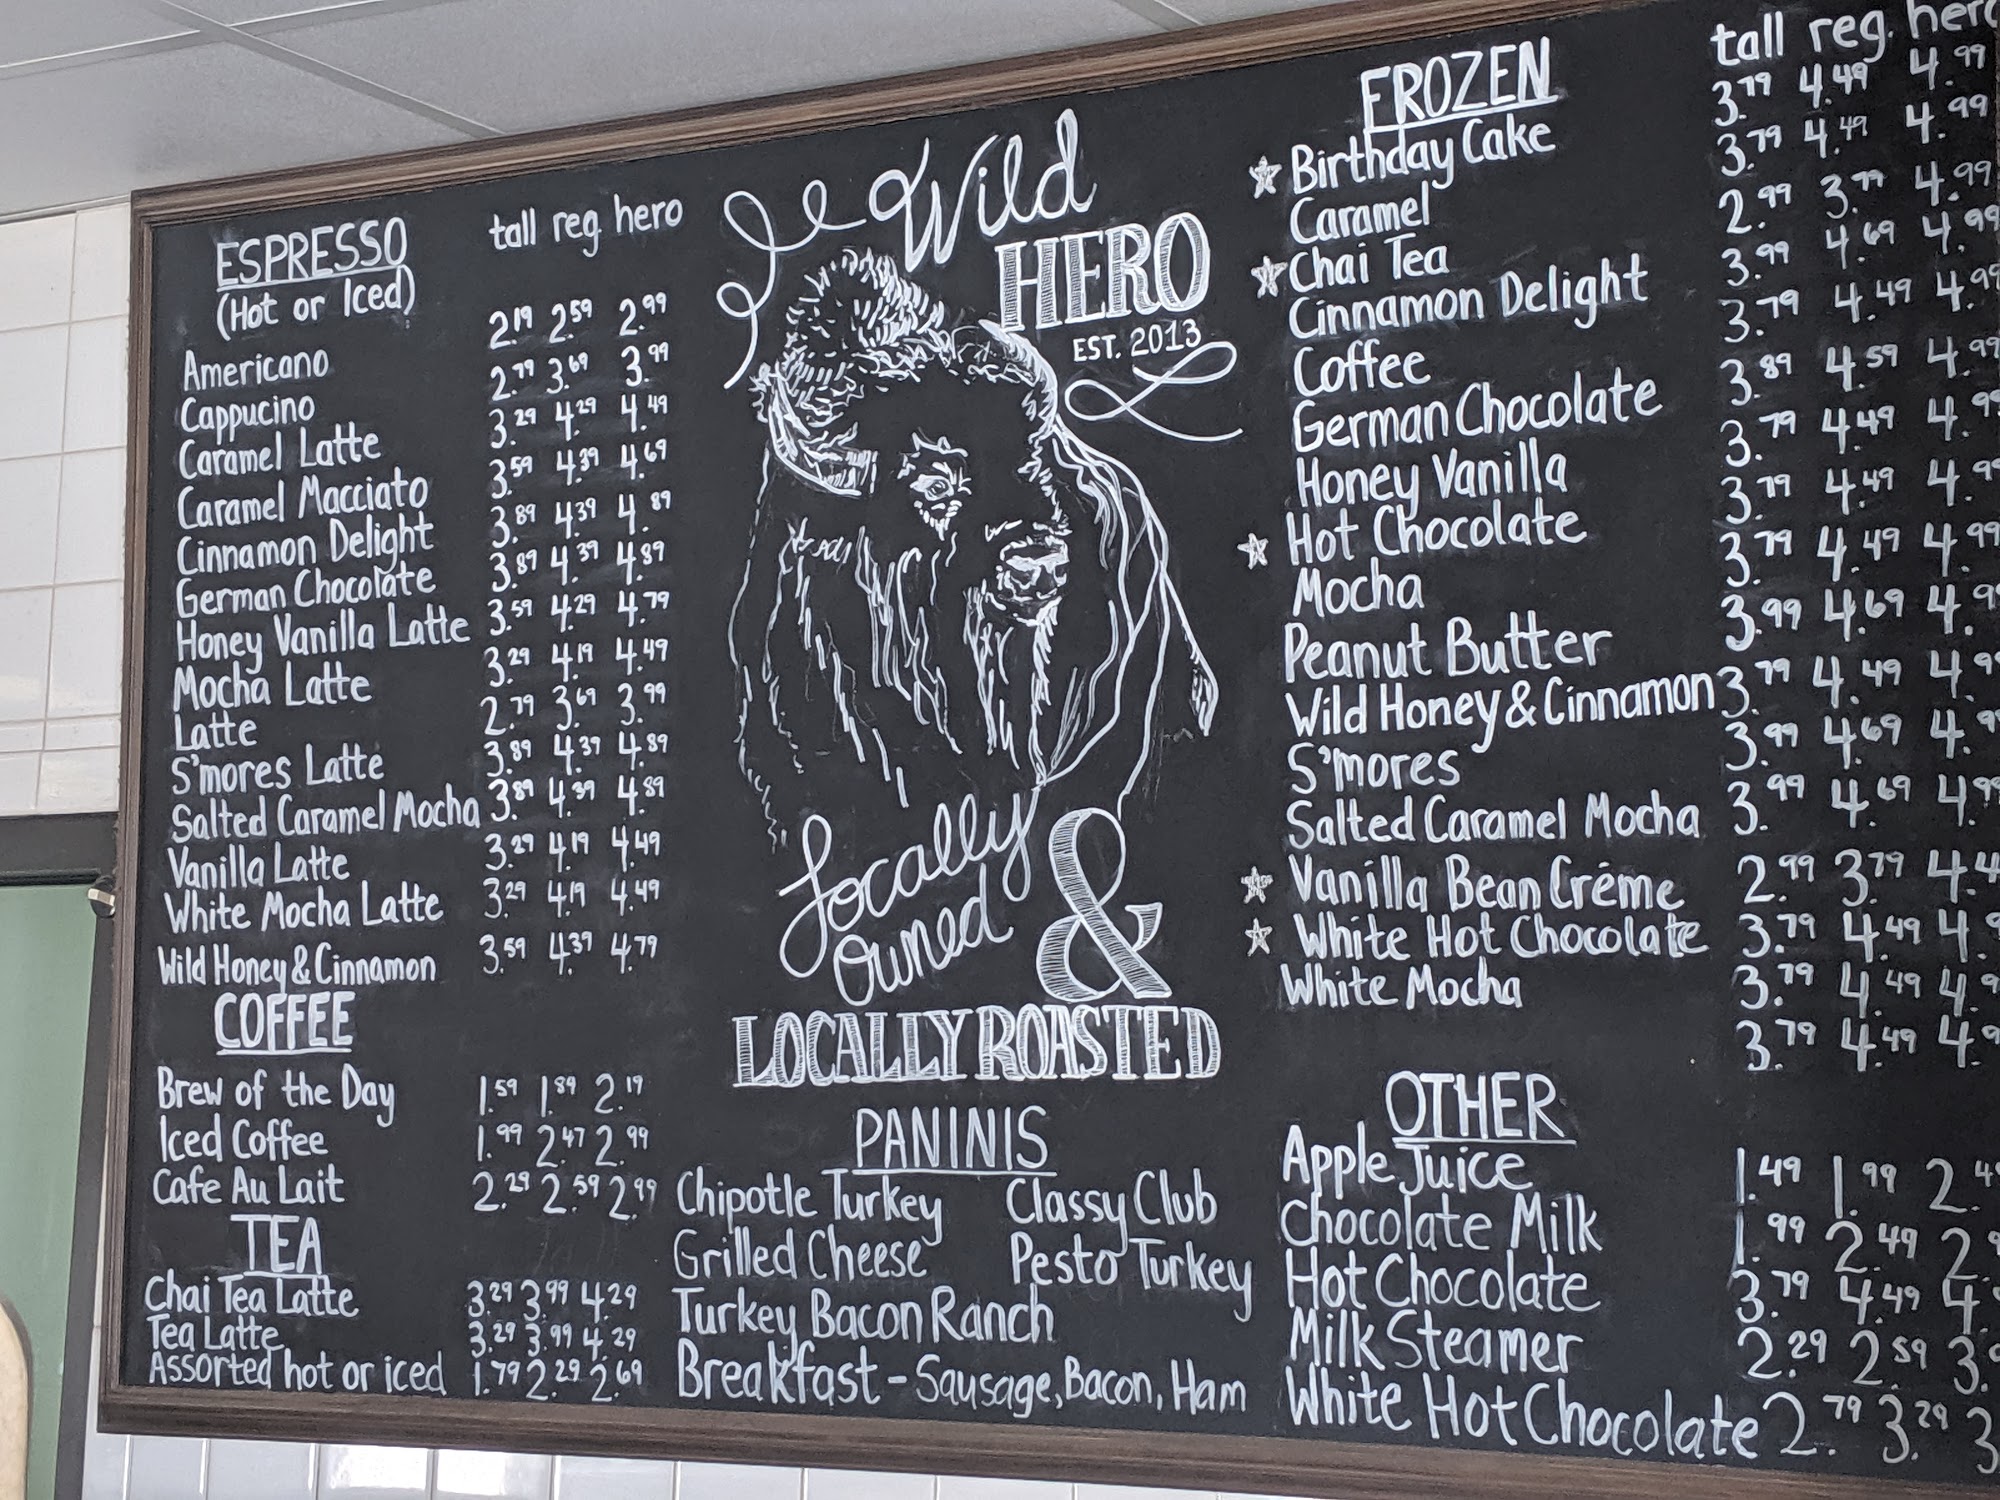 ESPRESSO tall reg. hero
(Hot or Iced)
Americano 2.19 2.59 2.99
Cappucino 2.79 3.69 3.99
Caramel Latte 3.29 4.29 4.49
Caramel Macciato 3.59 4.39 4.69
Cinnamon Delight 3.89 4.39 4.89
German Chocolate 3.89 4.39 4.89
Honey Vanilla Latte 3.59 4.29 4.79
Mocha Latte 3.29 4.19 4.49
Latte 2.79 3.69 3.99
S'mores Latte 3.89 4.39 4.89
Salted Caramel Mocha 3.89 4.39 4.89
Vanilla Latte 3.29 4.19 4.49
White Mocha Latte 3.29 4.19 4.49
Wild Honey & Cinnamon 3.59 4.39 4.79
COFFEE
Brew of the Day 1.59 1.89 2.19
Iced Coffee 1.99 2.47 2.99
Cafe Au Lait 2.29 2.59 2.99
TEA
Chai Tea Latte 3.29 3.99 4.29
Tea Latte 3.29 3.99 4.29
Assorted hot or iced 1.79 2.29 2.69
Wild
HERO
EST. 2013
Locally
Owned &
LOCALLY ROASTED
PANINIS
Chipotle Turkey Classy Club
Grilled Cheese Pesto Turkey
Turkey Bacon Ranch
Breakfast - Sausage, Bacon, Ham
FROZEN
Birthday Cake
Caramel
Chai Tea
Cinnamon Delight
Coffee
German Chocolate
Honey Vanilla
Hot Chocolate
Mocha
Peanut Butter
Wild Honey & Cinnamon
S'mores
Salted Caramel Mocha
Vanilla Bean Crème
White Hot Chocolate
White Mocha
tall reg. hero
3.79 4.49 4.99
3.79 4.49 4.99
2.99 3.79 4.99
3.99 4.69 4.99
3.79 4.49 4.99
3.89 4.59 4.99
3.79 4.49 4.99
3.79 4.49 4.99
3.79 4.49 4.99
3.99 4.69 4.9
3.79 4.49 4.9
3.99 4.69 4.9
3.99 4.69 4.99
2.99 3.79 4.4
3.79 4.49 4.9
3.79 4.49 4.9
3.79 4.49 4.9
OTHER
Apple Juice 1.49 1.99 2.4
Chocolate Milk 1.99 2.49 2.
Hot Chocolate 3.79 4.49 4.
Milk Steamer 2.29 2.59 3.
White Hot Chocolate 2.79 3.29 3